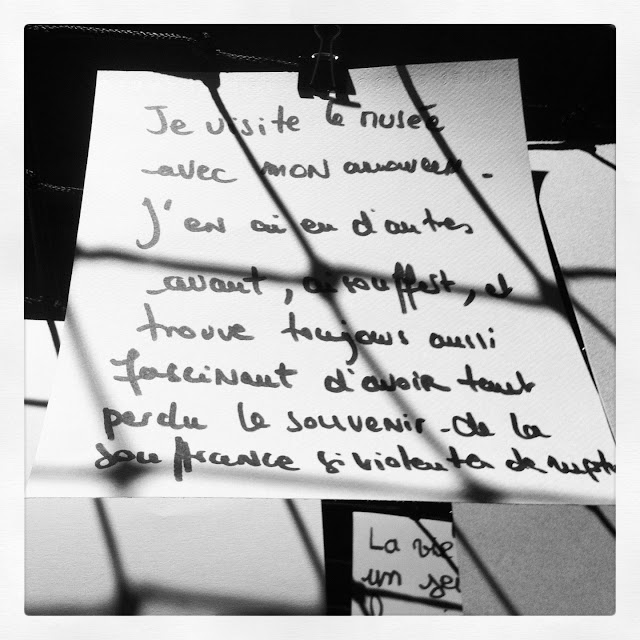 Je visite le musée
avec mon amoureux.
J'en ai eu d'autres
avant, ai souffert, et
trouve toujours aussi
fascinant d'avoir tant
perdu le souvenir de la
souffrance si violente de
La vie
un